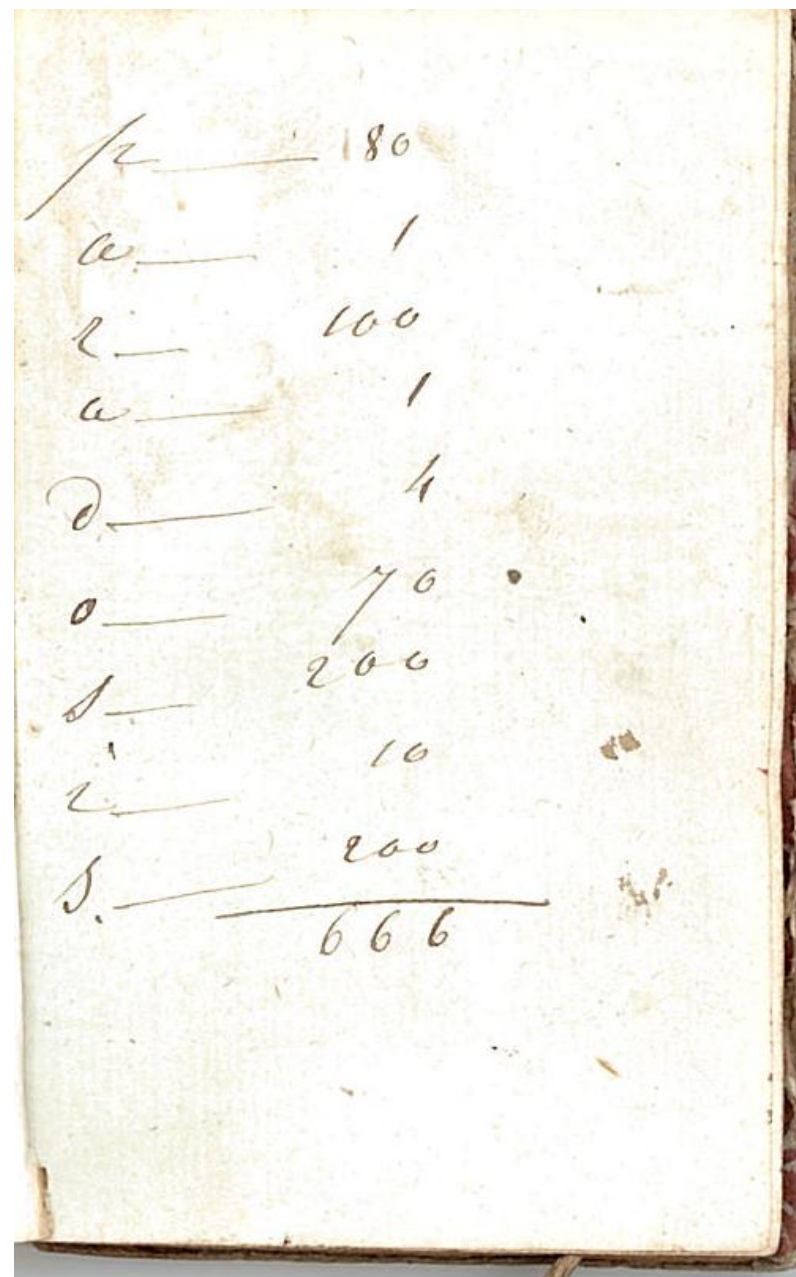 p 80
a 1
r 100
a 1
d 4
o 70
s 200
i 10
s. 200
666